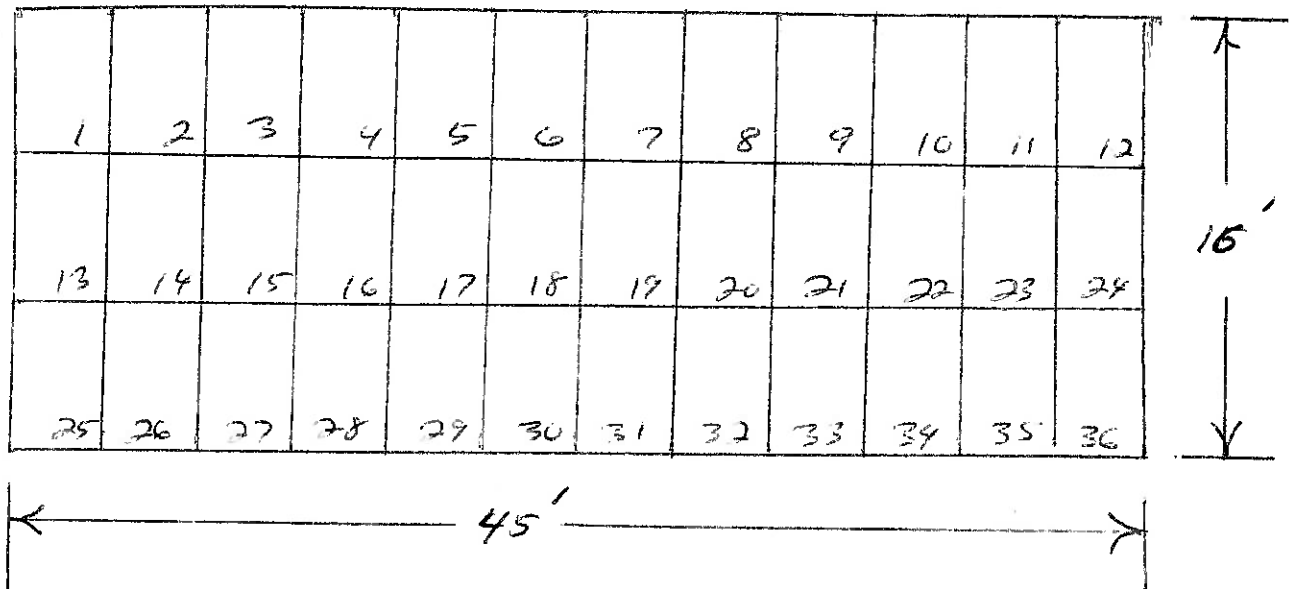 1 2 3 4 5 6 7 8 9 10 11 12
13 14 15 16 17 18 19 20 21 22 23 24
25 26 27 28 29 30 31 32 33 34 35 36
45'